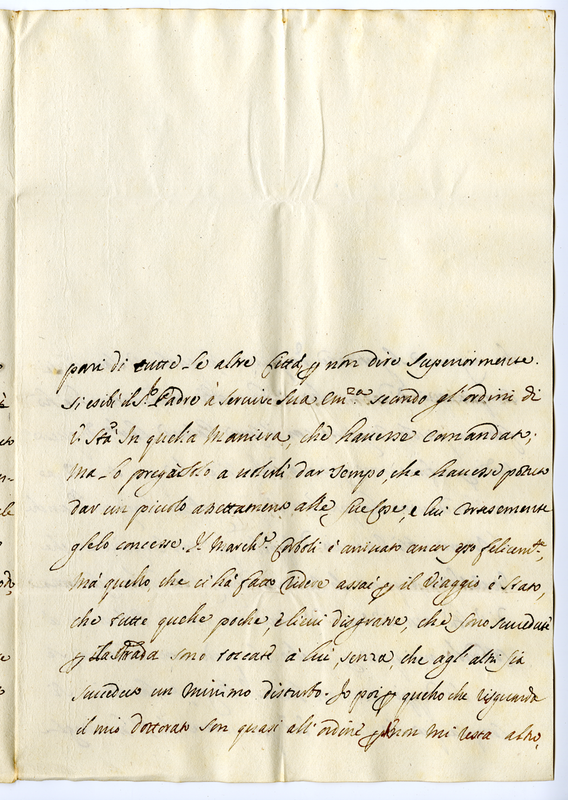 pari di tutte le altre Città, p non dire superiormente.
Si esibì il Sr. Padre à servire Sua Em.za secondo gl'ordini di
In quella maniera, che havesse comandato;
ma lo pregò a volerli dar tempo, che havesse potuto
dar un piccolo assettamento alle sue cose, e lui cortesemente
glelo concesse. Il March.e è arrivato ancor felicem.te,
mà quello, che ci hà fatto ridere assai p il viaggio è stato,
che tutte quelle poche, e lievi disgrazie, che sono succedute
p la strada sono toccate à lui, senza che agl'altri sia
succeduto un minimo disturbo. Io poi p quello che risguarda
il mio dottorato son quasi all'ordine, non mi resta altro,